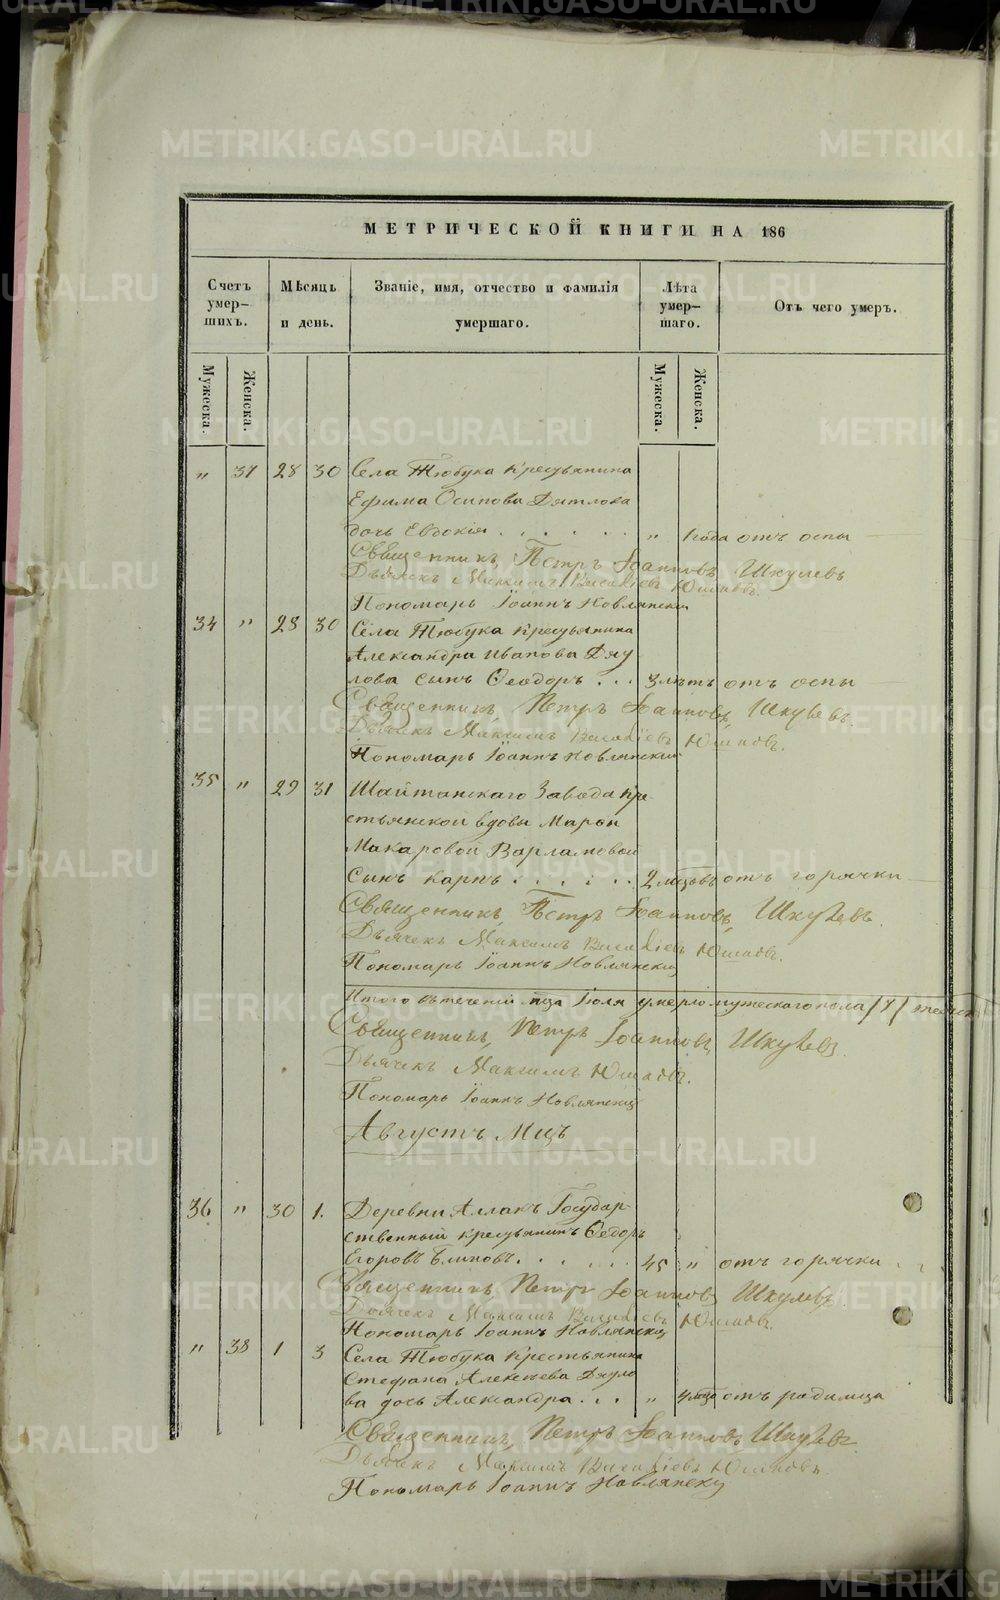 МЕТРИЧЕСКОЙ КНИГИ НА 186
Счетъ умер-шихъ.
Мѣсяцъ и день.
Званіе, имя, отчество и фамилія умершаго.
Лѣта умер-шаго.
Отъ чего умеръ.
Мужеска.
Женска.
Мужеска.
Женска.
„ 37 28 30 Села Тюбука Крестьянина
Ефима Осипова Дятлова
дочь Евдокія . . . . . . „ 1 года отъ оспы
Священникъ Петръ Іоанновъ Шкулевъ
Дьячекъ Максимъ Василіевъ Юшковъ.
Пономарь Іоаннъ Новлянскій
34 „ 28 30 Села Тюбука Крестьянина
Александра Иванова Дяу
лова сынъ Ѳеодоръ . . . 3 лѣтъ отъ оспы
Священникъ, Петръ Іоанновъ, Шкулевъ.
Дьячекъ Максимъ Василіевъ Юшковъ.
Пономарь Іоаннъ Новлянскій
35 „ 29 31 Шайтанскаго Завода кре-
стьянской вдовы Марѳы
Макаровой Варламовой
сынъ Карпъ . . . . . 2 мцовъ отъ горячки
Священникъ, Петръ Іоанновъ, Шкулевъ.
Дьячекъ Максимъ Василіевъ Юшковъ.
Пономарь Іоаннъ Новлянскій
Итого въ теченіи мца Іюля умерло мужескаго пола /7/
Священникъ, Петръ Іоанновъ Шкулевъ.
Дьячекъ Максимъ Юшковъ.
Пономарь Іоаннъ Новлянскій
Августъ Мцъ
36 „ 30 1. Деревни Аллакъ Государ-
ственный крестьянинъ Ѳедоръ
Егоровъ Блиновъ. . . . . . 45 „ отъ горячки . .
Священникъ, Петръ Іоанновъ Шкулевъ.
Дьячекъ Максимъ Василіевъ Юшковъ.
Пономарь Іоаннъ Новлянскій
„ 38 1 3 Села Тюбука Крестьянина
Стефана Алексѣева Дяуло
ва дочь Александра . . . „ отъ родимца
Священникъ, Петръ Іоанновъ, Шкулевъ.
Дьячекъ Максимъ Василіевъ Юшковъ.
Пономарь Іоаннъ Новлянскій
METRIKI.GASO-URAL.RU